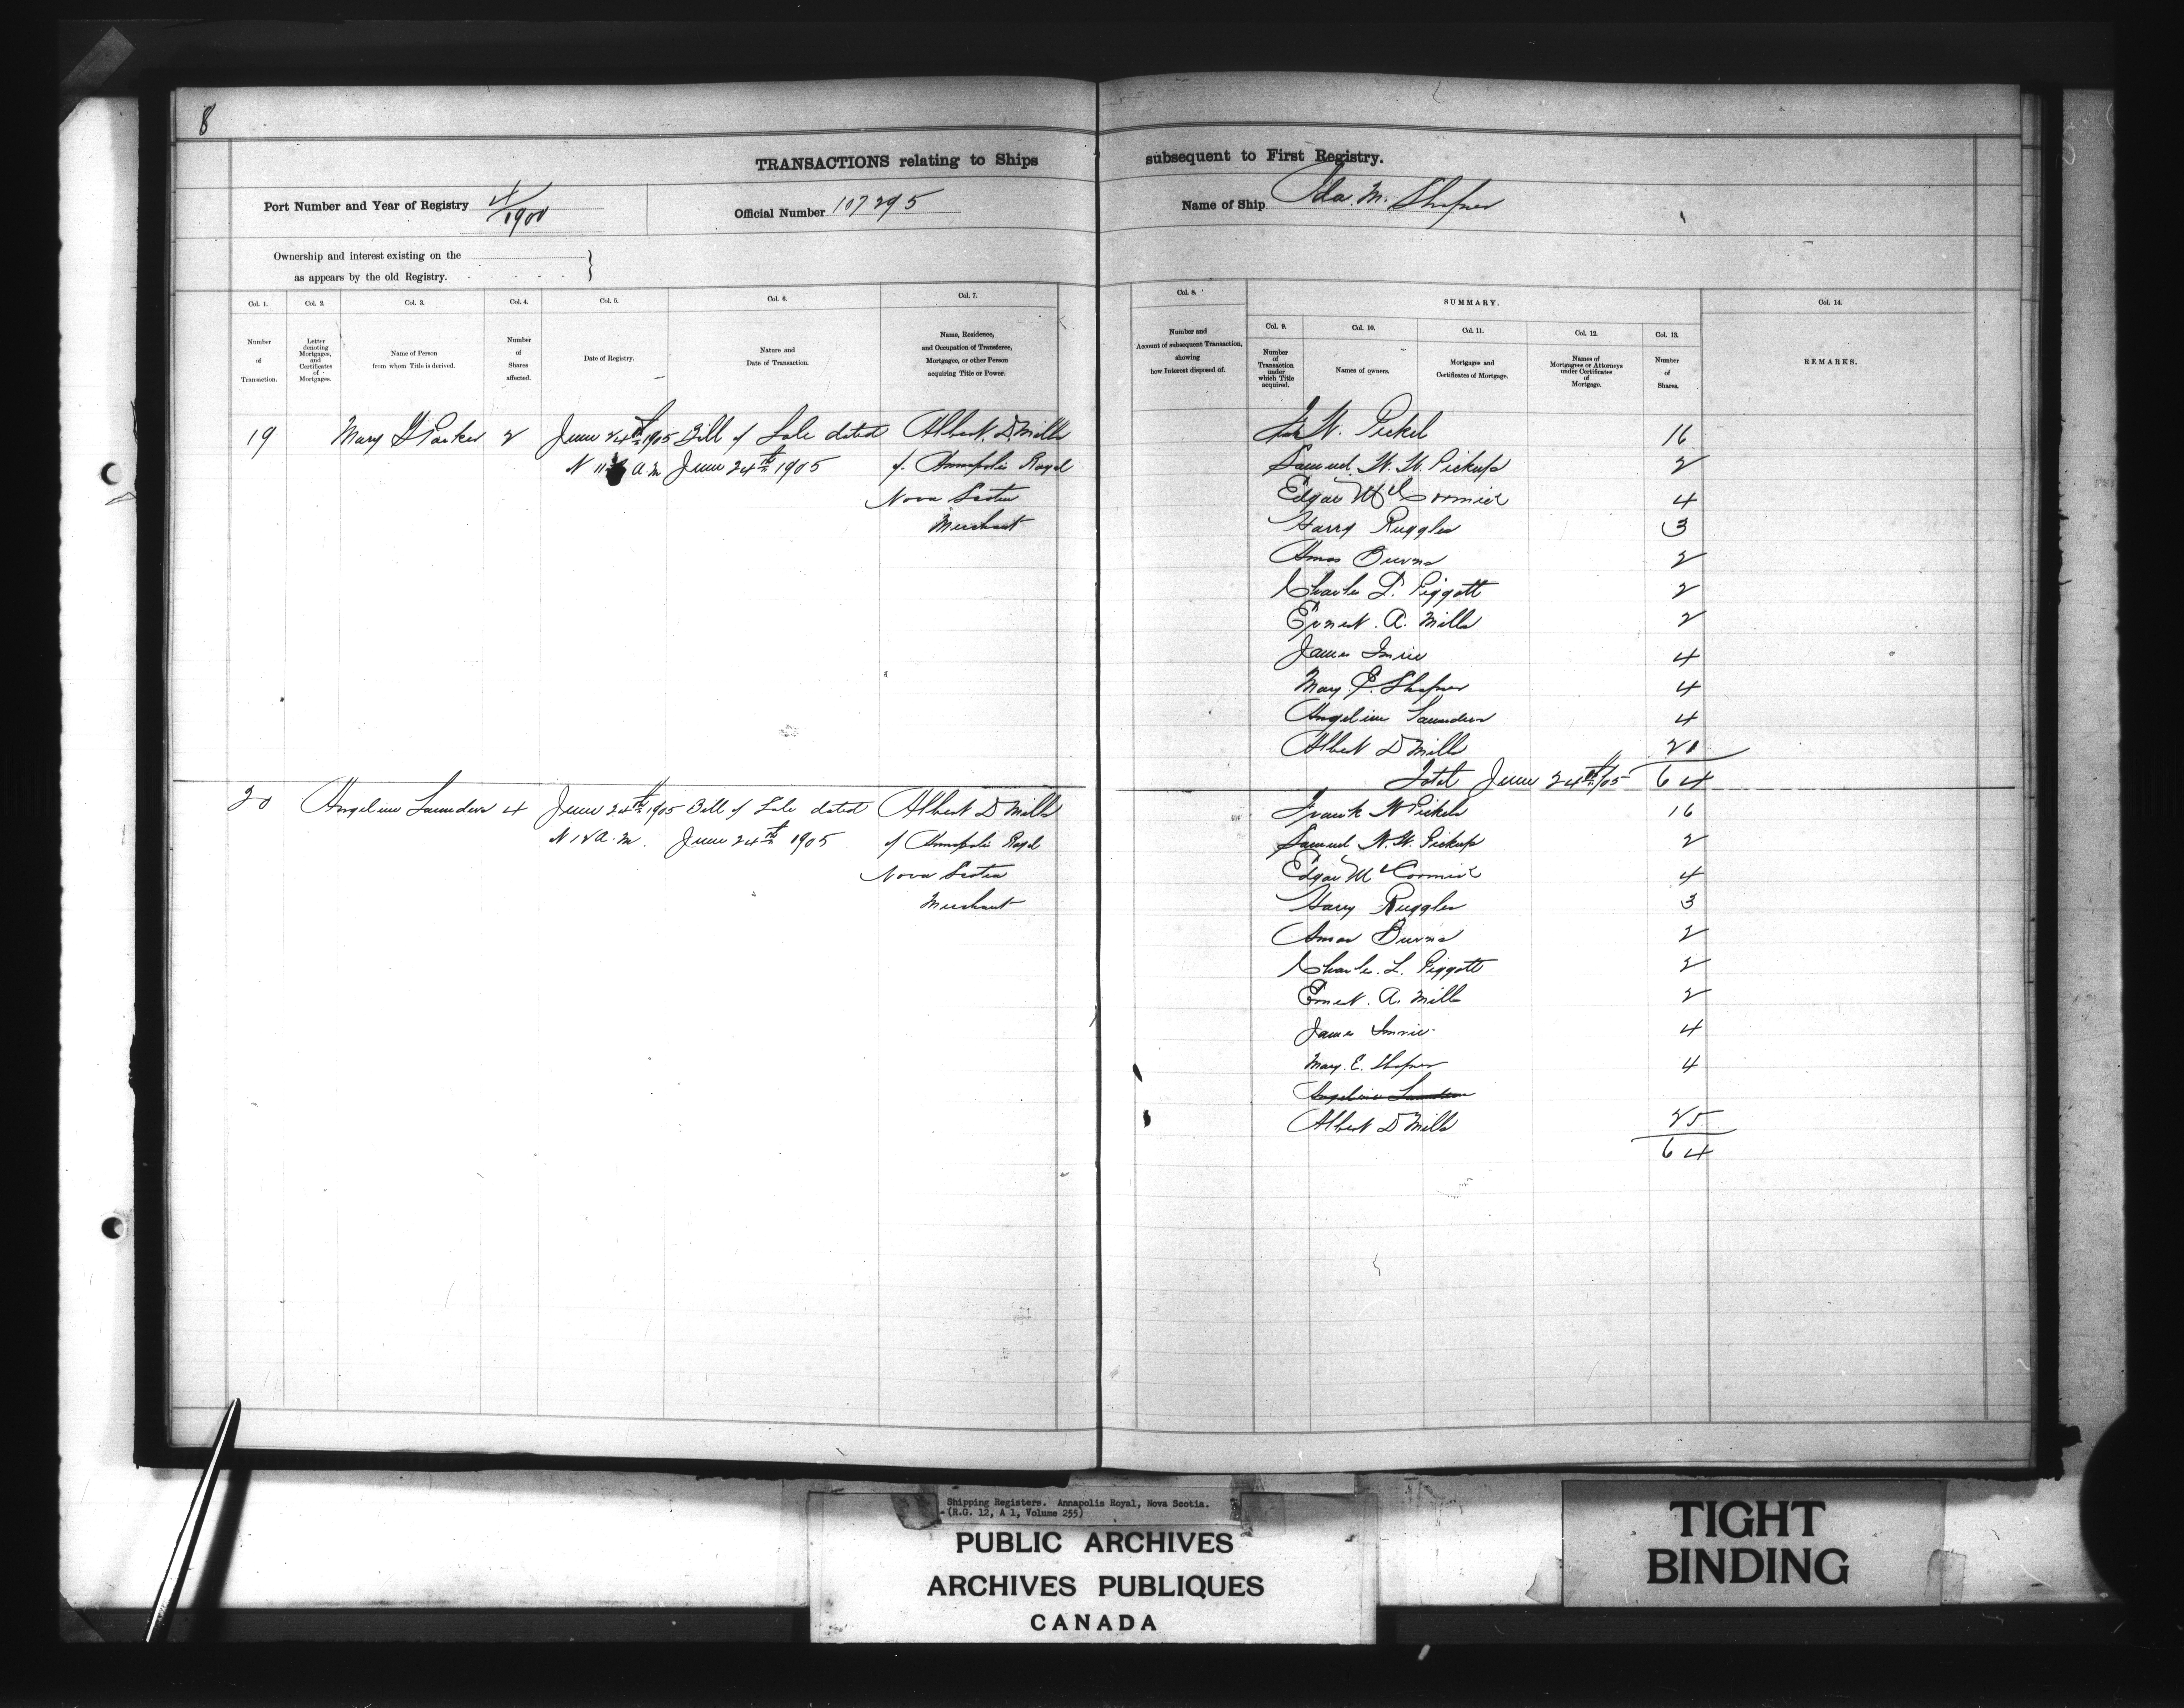 8
TRANSACTIONS relating to Ships subsequent to First Registry.
Port Number and Year of Registry 4/1900
Official Number 107295
Name of Ship Ida M. Shafner
Ownership and interest existing on the
as appears by the old Registry.
Col. 1. Col. 2. Col. 3. Col. 4. Col. 5. Col. 6. Col. 7. Col. 8. SUMMARY. Col. 14.
Col. 9. Col. 10. Col. 11. Col. 12. Col. 13.
Number of Transaction.
Letter denoting Mortgages, and Certificates of Mortgages.
Name of Person from whom Title is derived.
Number of Shares affected.
Date of Registry.
Nature and Date of Transaction.
Name, Residence, and Occupation of Transferee, Mortgagee, or other Person acquiring Title or Power.
Number and Account of subsequent Transaction, showing how Interest disposed of.
Number of Transaction under which Title acquired.
Names of owners.
Mortgages and Certificates of Mortgage.
Names of Mortgagees or Attorneys under Certificates of Mortgage.
Number of Shares.
REMARKS.
19 Mary Parker 2 June 24th 1905 Bill of Sale dated Albert D Mills
A.M June 24th 1905 of Annapolis Royal
Nova Scotia
Merchant
W. Pickels 16
Samuel W. W. Pickup 2
Edgar McCormick 4
Harry Ruggles 3
Amos Burns 2
Charles L. Piggott 2
Ernest. A. Mills 2
James Imrie 4
Mary. E. Shafner 4
Angeline Saunders 4
Albert D Mills 21
Total June 24th/05 64
20 Angeline Saunders 4 June 24th 1905 Bill of Sale dated Albert D Mills
A.M. June 24th 1905 of Annapolis Royal
Nova Scotia
Merchant
Frank W Pickels 16
Samuel W. W. Pickup 2
Edgar McCormick 4
Harry Ruggles 3
Amos Burns 2
Charles. L. Piggott 2
Ernest. A. Mills 2
James Imrie 4
Mary. E. Shafner 4
Angeline Saunders
Albert D Mills 25
64
Shipping Registers. Annapolis Royal, Nova Scotia.
(R.G. 12, A 1, Volume 255)
PUBLIC ARCHIVES
ARCHIVES PUBLIQUES
CANADA
TIGHT
BINDING